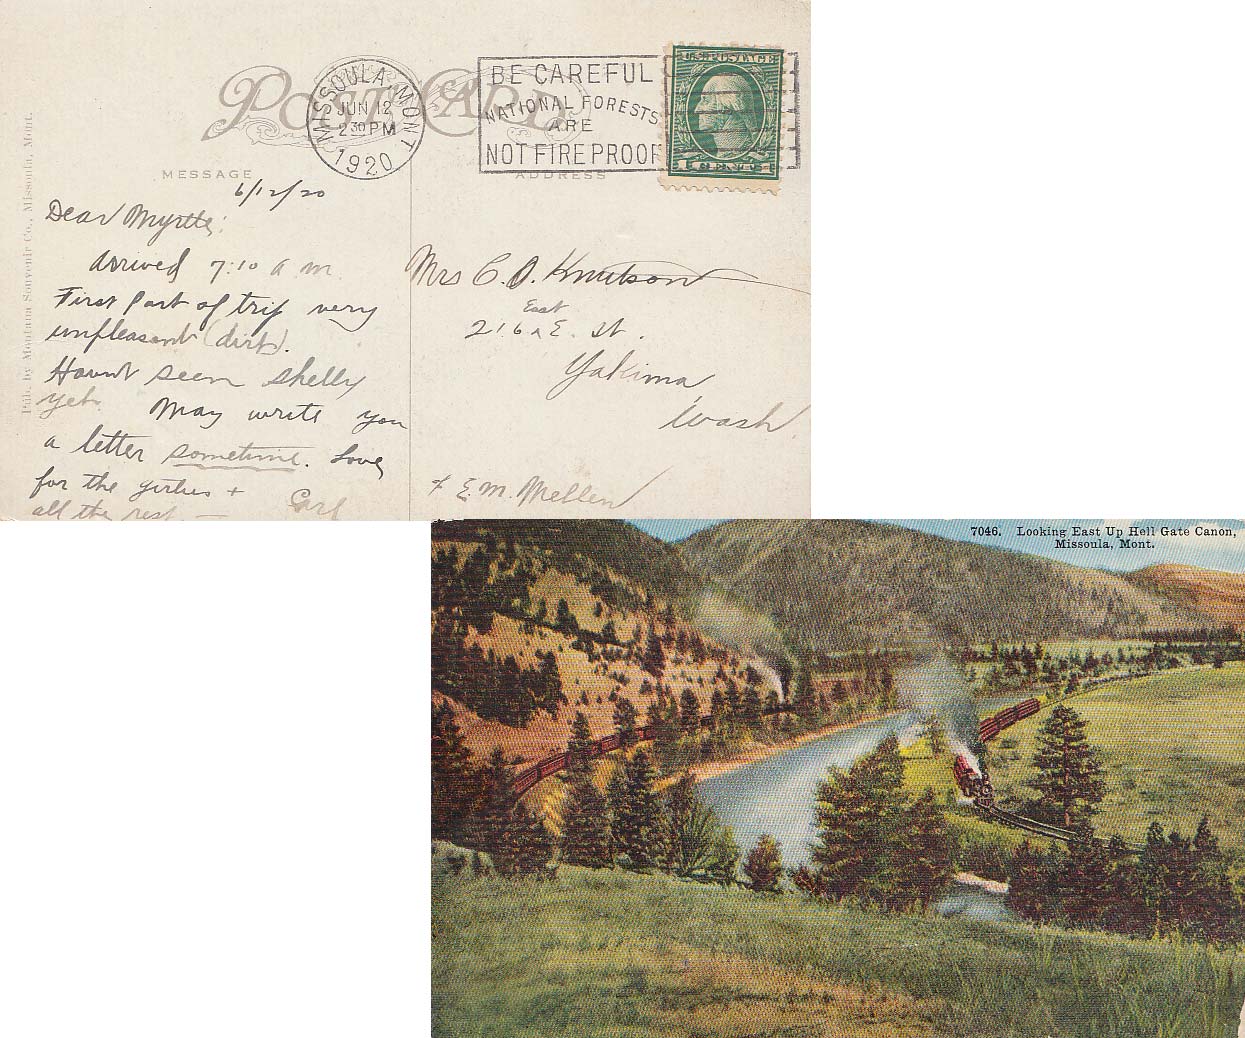 POST CARD
MISSOULA, MONT
JUN 12
2 30 PM
1920
BE CAREFUL
NATIONAL FORESTS
ARE
NOT FIREPROOF
U.S. POSTAGE
1 CENTS 1
MESSAGE
ADDRESS
Pub. by Montana Souvenir Co., Missoula, Mont.
6/12/20
Dear Myrtle:
Arrived 7:10 a m.
First part of trip very
unpleasant (dirt).
Havnt seen Shelly
yet. May write you
a letter sometime. Love
for the girlies +
all the rest. — Carl
Mrs C. O. Knutson
East
216 ^ E. St.
Yakima
Wash.
% E. M. Mellen
7046. Looking East Up Hell Gate Canon,
Missoula, Mont.